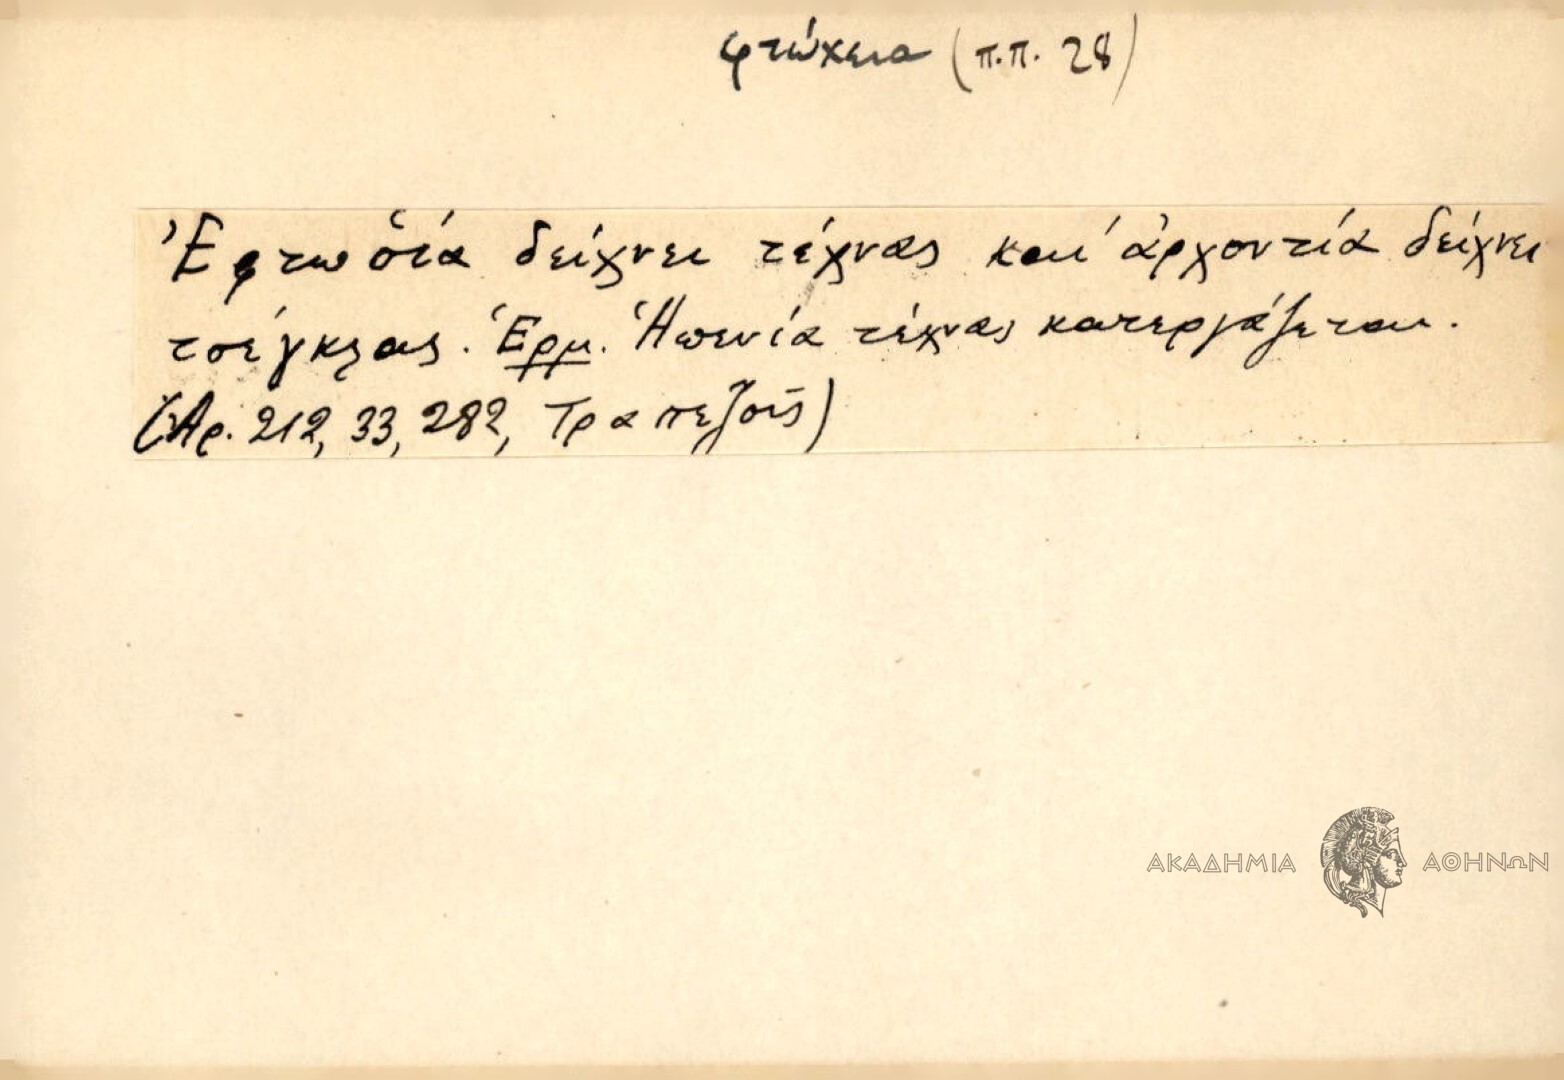 φτώχεια (π.π. 28)
Ἐφτωσ̌ία δείχνει τέχνας και ἀρχοντία δείχνει
τσέγκρας. Ἑρμ. Ἡ πενία τέχνας κατεργάζεται.
(Ἀρ. 212, 33, 282, Τραπεζοῦς)
ΑΚΑΔΗΜΙΑ ΑΘΗΝΩΝ